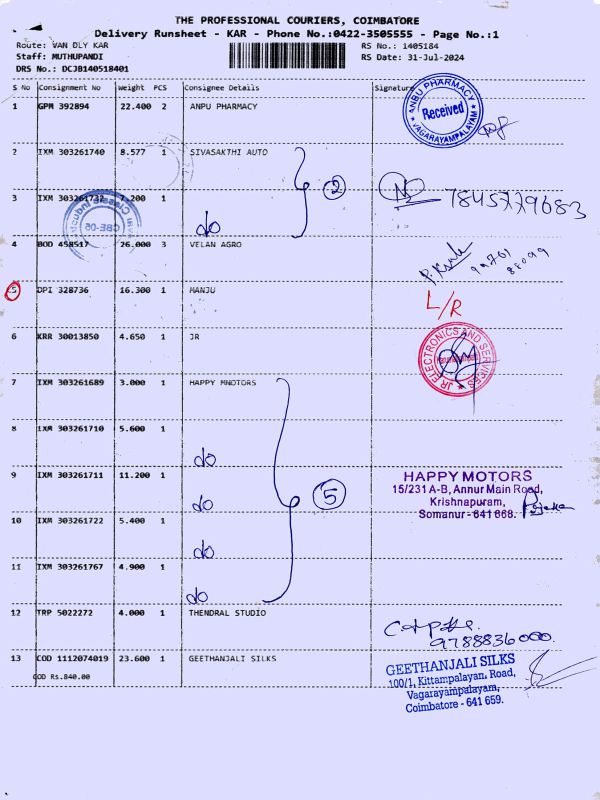 THE PROFESSIONAL COURIERS, COIMBATORE
Delivery Runsheet - KAR - Phone No.:0422-3505555 - Page No.:1
Route: VAN DLY KAR RS No.: 1405184
Staff: MUTHUPANDI RS Date: 31-Jul-2024
DRS No.: DCJB140518401
S No Consignment No Weight PCS Consignee Details Signature
1 GPM 392894 22.400 2 ANPU PHARMACY
ANBU PHARMACY
Received
VAGARAYAMPALAYAM
2 IXM 303261740 8.577 1 SIVASAKTHI AUTO
2
3 IXM 303261732 7.200 1 do
7845779683
4 BOD 458517 26.000 3 VELAN AGRO
CBE-06
5 DPI 328736 16.300 1 MANJU
L/R
6 KRR 30013850 4.650 1 JR
JR ELECTRONICS AND SERVICES
7 IXM 303261689 3.000 1 HAPPY MNOTORS
8 IXM 303261710 5.600 1 do
9 IXM 303261711 11.200 1 do
5
HAPPY MOTORS
15/231 A-B, Annur Main Road,
Krishnapuram,
Somanur - 641 668.
10 IXM 303261722 5.400 1 do
11 IXM 303261767 4.900 1 do
12 TRP 5022272 4.000 1 THENDRAL STUDIO
9788836000
13 COD 1112074019 23.600 1 GEETHANJALI SILKS
COD Rs.840.00
GEETHANJALI SILKS
100/1, Kittampalayan, Road,
Vagarayampalayam,
Coimbatore - 641 659.